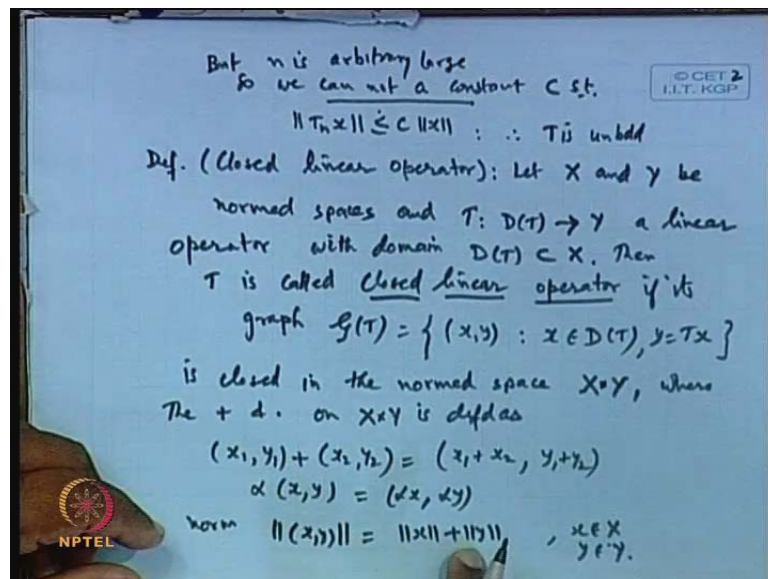 But n is arbitrary large
So we can not a constant C s.t.
© CET 2
I.I.T. KGP
||Tₙx|| ≤ C ||x|| : ∴ T is unbdd
Def. (Closed linear operator): Let X and Y be
normed spaces and T: D(T) → Y a linear
operator with domain D(T) ⊂ X. Then
T is called Closed linear operator if its
graph G(T) = { (x,y) : x ∈ D(T), y = Tx }
is closed in the normed space X×Y, where
The + d . on X×Y is defd as
(x₁, y₁) + (x₂, y₂) = (x₁ + x₂, y₁+y₂)
α (x,y) = (αx, αy)
norm ||(x,y)|| = ||x|| + ||y|| , x ∈ X
y ∈ Y.
NPTEL